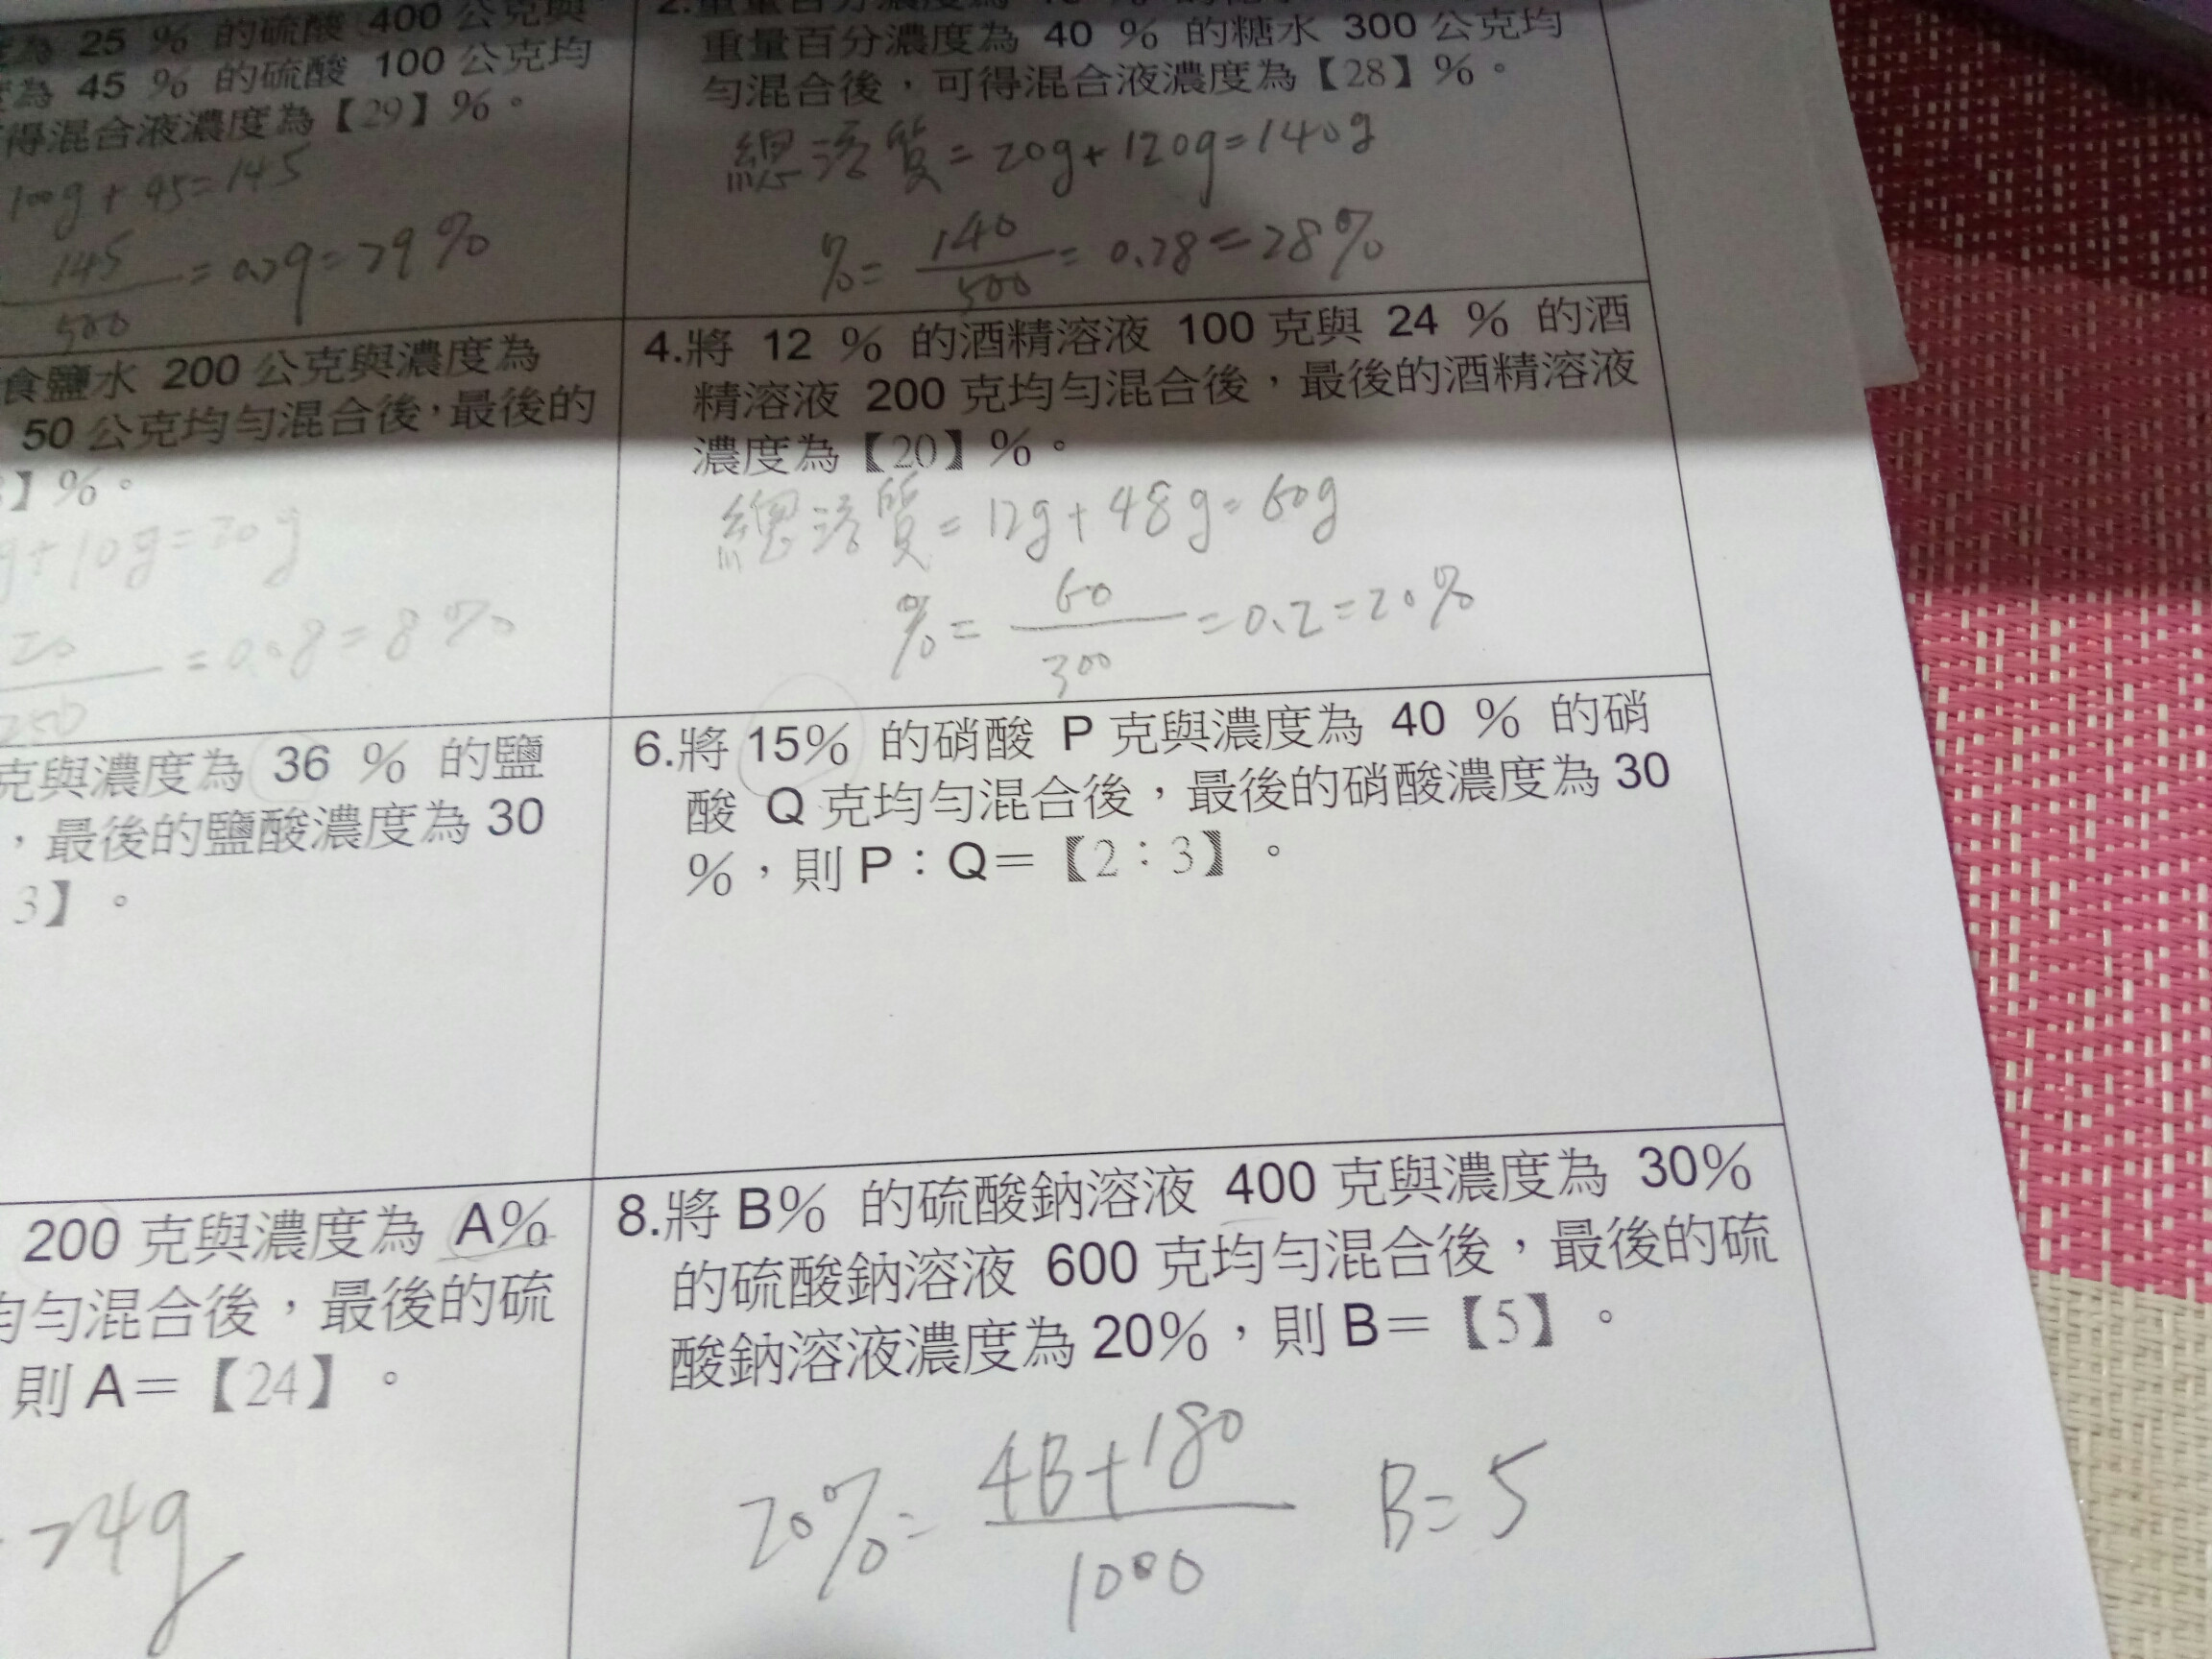 為 25 % 的硫酸 400 公克與
為 45 % 的硫酸 100 公克均
得混合液濃度為【29】%。
100g + 45 = 145
145
500
= 0.29 = 29%
重量百分濃度為 40 % 的糖水 300 公克均
勻混合後，可得混合液濃度為【28】%。
總溶質 = 20g + 120g = 140g
% = 140
500
= 0.28 = 28%
食鹽水 200 公克與濃度為
50 公克均勻混合後，最後的
】%。
g + 10g = 20g
20
250
= 0.08 = 8%
4.將 12 % 的酒精溶液 100 克與 24 % 的酒
精溶液 200 克均勻混合後，最後的酒精溶液
濃度為【20】%。
總溶質 = 12g + 48g = 60g
% = 60
300
= 0.2 = 20%
克與濃度為 36 % 的鹽
，最後的鹽酸濃度為 30
3】。
6.將 15% 的硝酸 P 克與濃度為 40 % 的硝
酸 Q 克均勻混合後，最後的硝酸濃度為 30
%，則 P：Q＝【2：3】。
200 克與濃度為 A%
勻混合後，最後的硫
則 A＝【24】。
24g
8.將 B% 的硫酸鈉溶液 400 克與濃度為 30%
的硫酸鈉溶液 600 克均勻混合後，最後的硫
酸鈉溶液濃度為 20%，則 B＝【5】。
20% = 4B + 180
1000
B = 5